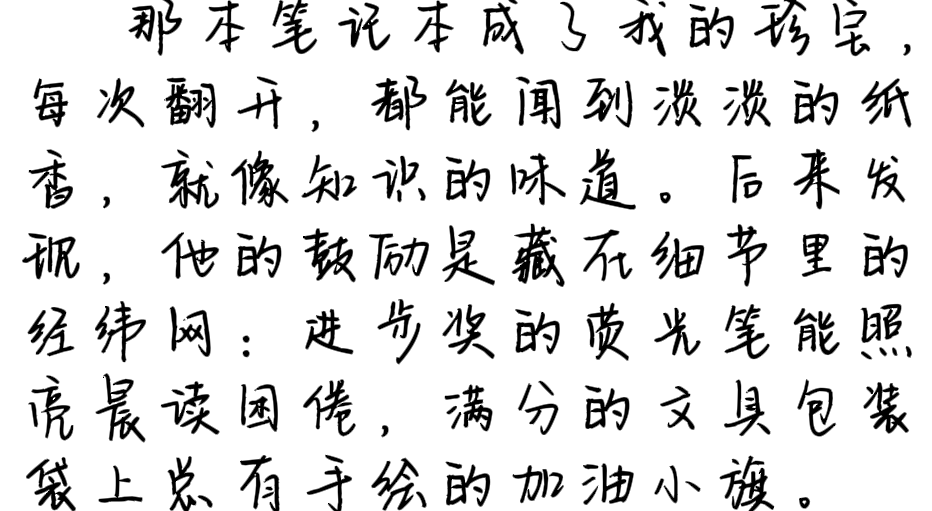 那本笔记本成了我的珍宝，
每次翻开，都能闻到淡淡的纸
香，就像知识的味道。后来发
现，他的鼓励是藏在细节里的
经纬网：进步奖的荧光笔能照
亮晨读困倦，满分的文具包装
袋上总有手绘的加油小旗。